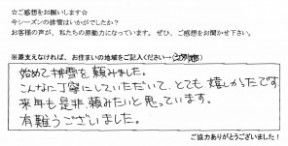 ☆ご感想をお願いします☆
今シーズンの排雪はいかがでしたか?
お客様の声が、私たちの原動力になっています。ぜひ、ご感想をお聞かせ下さい。
※差支えなければ、お住まいの地域をご記入ください→
始めて排雪を頼みました。
こんなに丁寧にしていただいて、とても嬉しかったです
来年も是非、頼みたいと思っています。
有難うございました。
ご協力ありがとうございました!